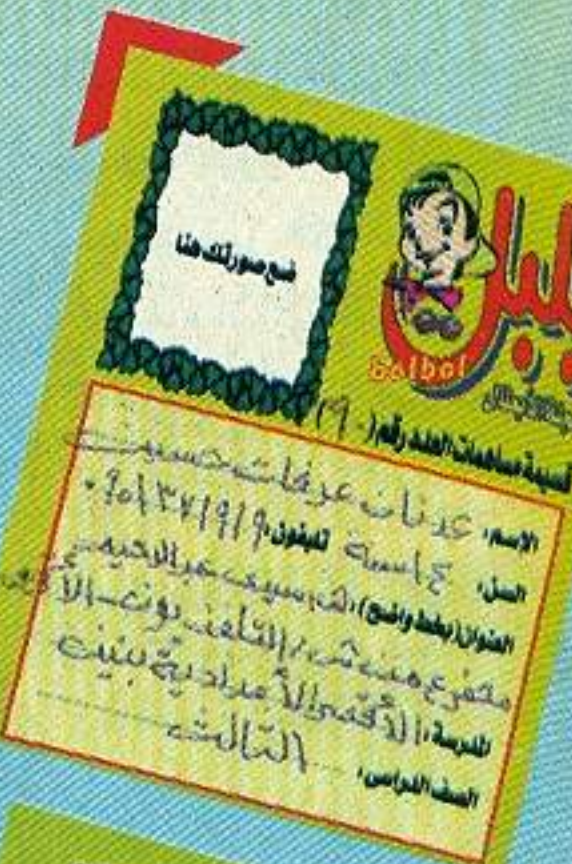 ضع صورتك هنا
بلبل
bolbol
قسيمة مساهمات العدد رقم (٢٩٠)
الاسم: عدنان عرفات حسين
السن: ١٤ سنة تليفون:
العنوان (بخط واضح): ش سيف عبدالرحيم
متفرع من ش / التلفزيون - الأقصر
المدرسة: الأقصر الأعدادية بنين
الصف الدراسى: الثالث